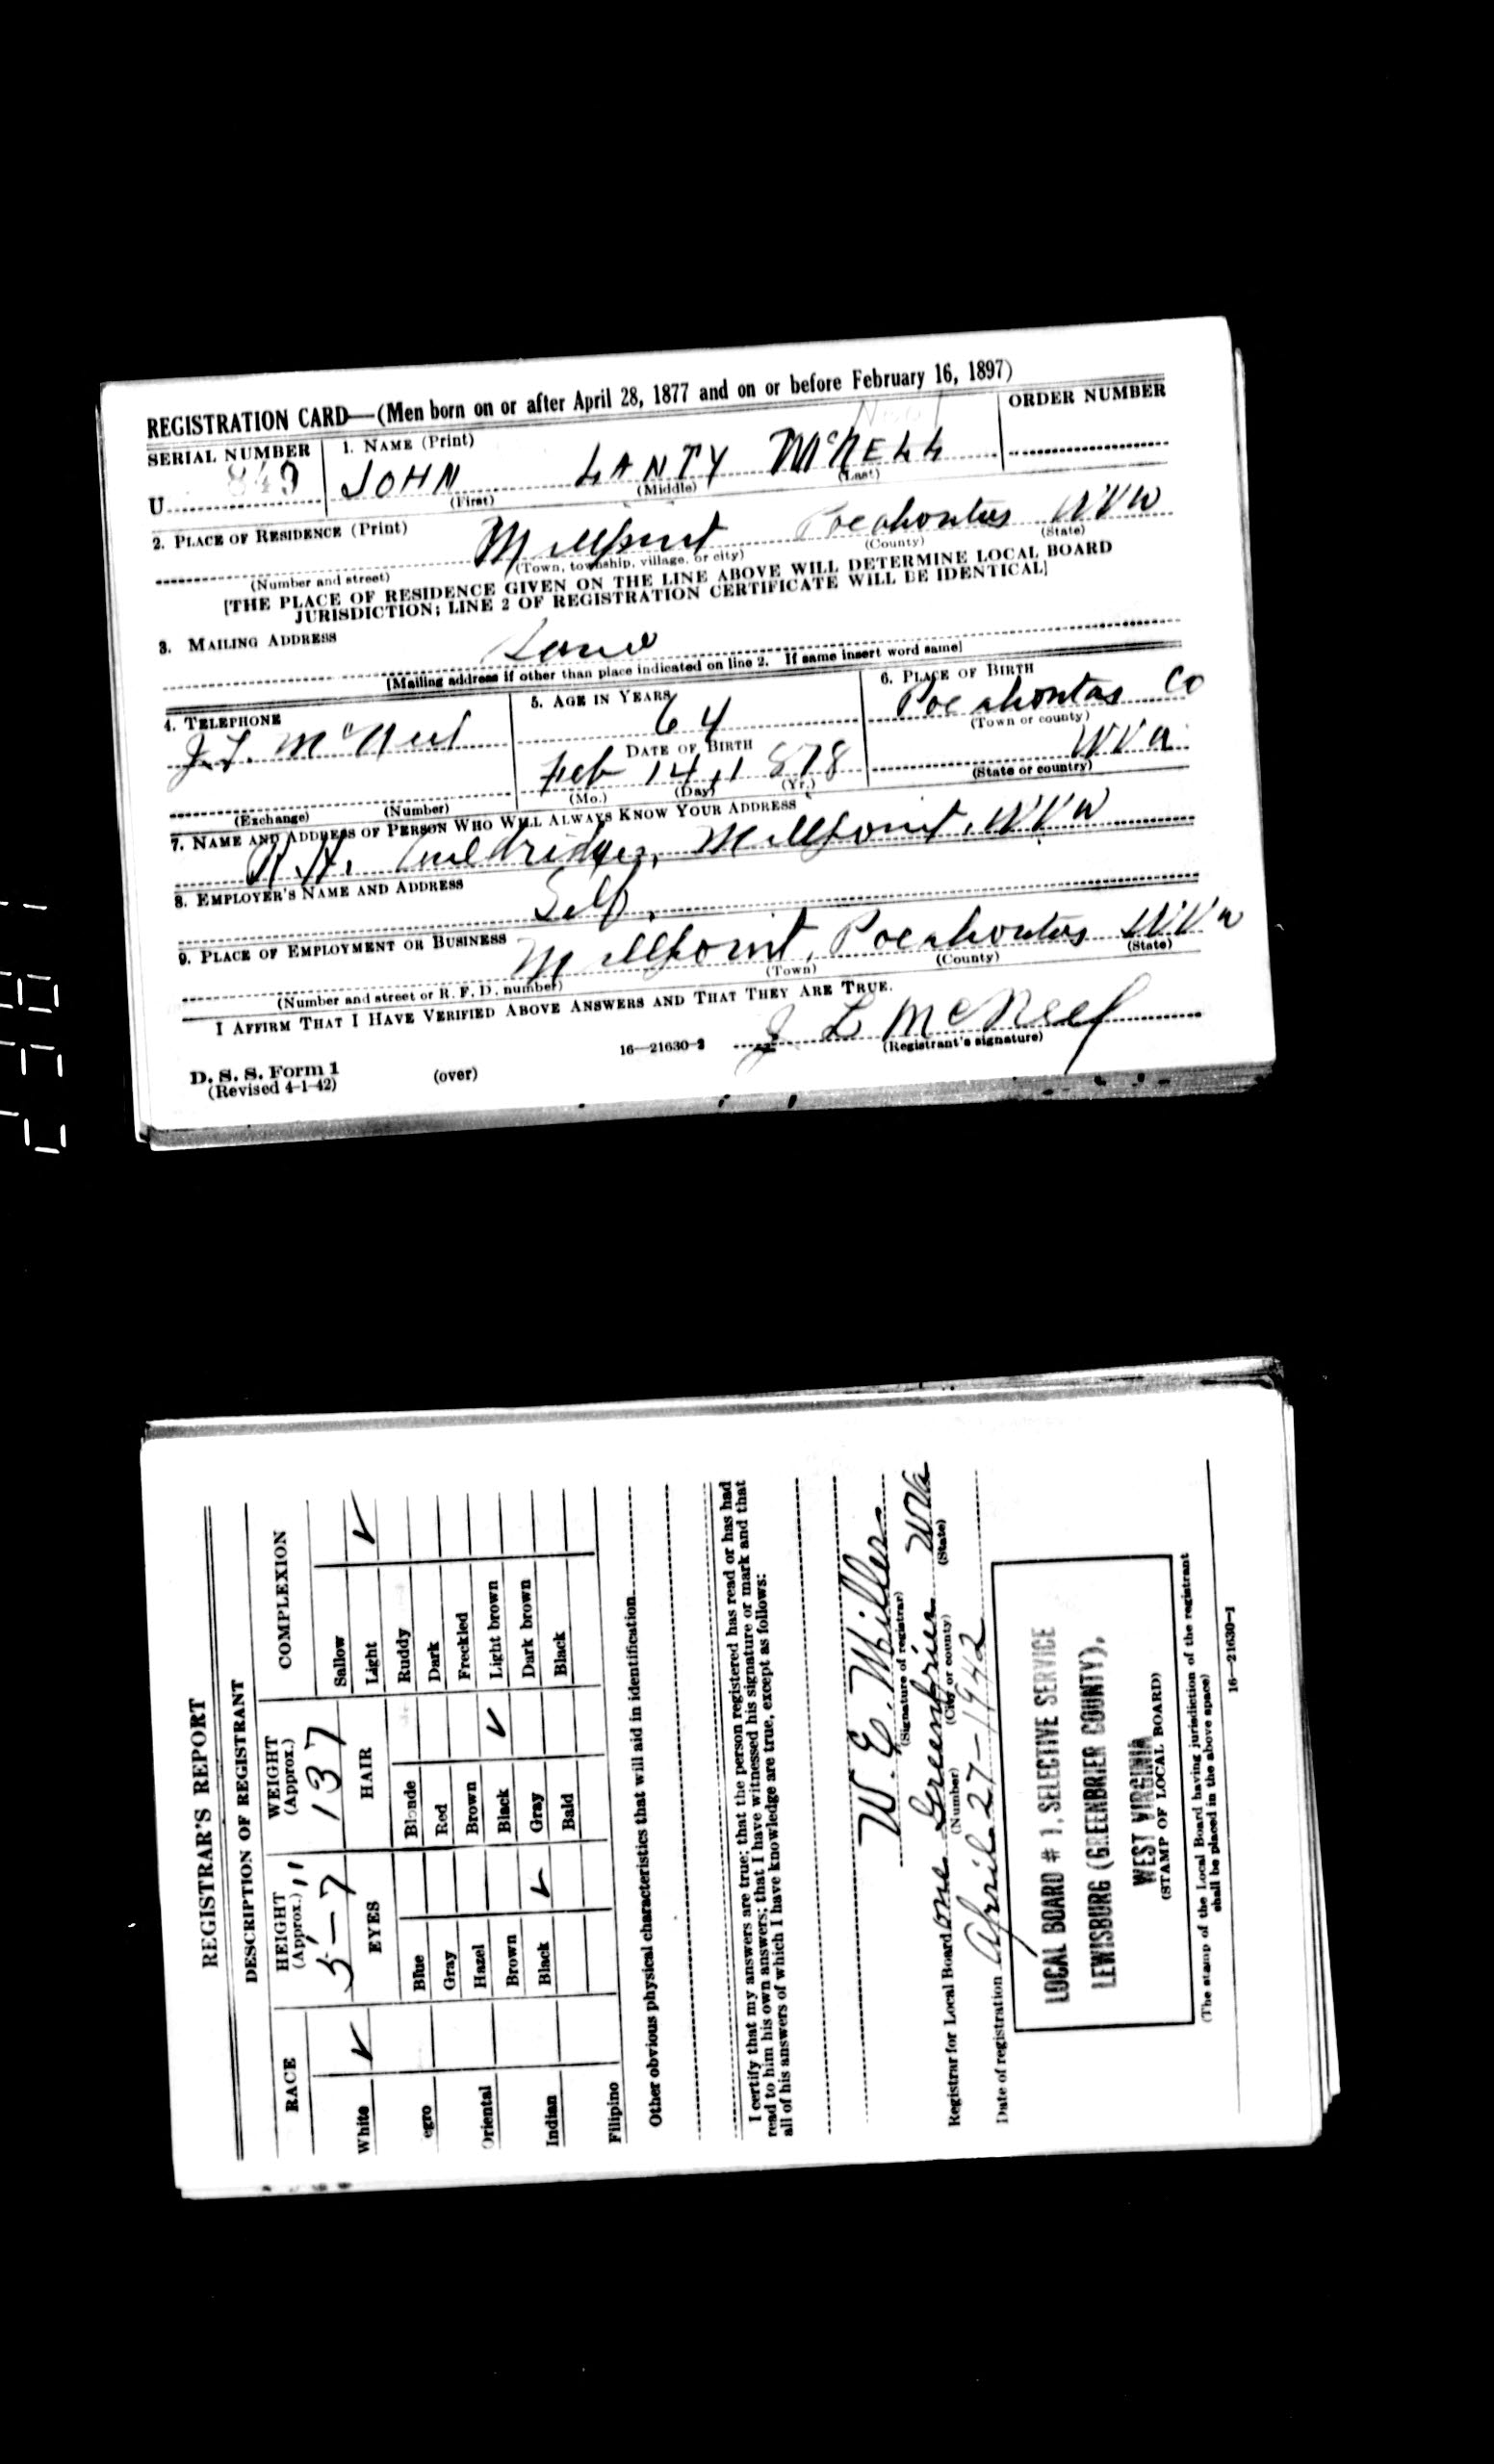 REGISTRATION CARD—(Men born on or after April 28, 1877 and on or before February 16, 1897)
SERIAL NUMBER
1. NAME (Print)
ORDER NUMBER
U
JOHN LANTY McNELL
(First) (Middle) (Last)
2. PLACE OF RESIDENCE (Print)
Millpoint Pocahontas W Va
(Number and street) (Town, township, village, or city) (County) (State)
[THE PLACE OF RESIDENCE GIVEN ON THE LINE ABOVE WILL DETERMINE LOCAL BOARD
JURISDICTION; LINE 2 OF REGISTRATION CERTIFICATE WILL BE IDENTICAL]
3. MAILING ADDRESS
Same
[Mailing address if other than place indicated on line 2. If same insert word same]
4. TELEPHONE
J. L. McNeel
(Exchange) (Number)
5. AGE IN YEARS
64
DATE OF BIRTH
Feb 14, 1878
(Mo.) (Day) (Yr.)
6. PLACE OF BIRTH
Pocahontas Co
(Town or county)
W Va
(State or country)
7. NAME AND ADDRESS OF PERSON WHO WILL ALWAYS KNOW YOUR ADDRESS
Millpoint, W Va
8. EMPLOYER'S NAME AND ADDRESS
Self.
9. PLACE OF EMPLOYMENT OR BUSINESS
Millpoint, Pocahontas W Va
(Number and street or R. F. D. number) (Town) (County) (State)
I AFFIRM THAT I HAVE VERIFIED ABOVE ANSWERS AND THAT THEY ARE TRUE.
J L McNeel
(Registrant's signature)
D. S. S. Form 1
(Revised 4-1-42)
(over)
16—21630-2
REGISTRAR'S REPORT
DESCRIPTION OF REGISTRANT
RACE
HEIGHT (Approx.)
5-7"
WEIGHT (Approx.)
137
COMPLEXION
EYES
HAIR
White ✓
egro
Oriental
Indian
Filipino
Blue
Gray
Hazel
Brown
Black ✓
Blonde
Red
Brown
Black ✓
Gray
Bald
Sallow
Light ✓
Ruddy
Dark
Freckled
Light brown
Dark brown
Black
Other obvious physical characteristics that will aid in identification
I certify that my answers are true; that the person registered has read or has had
read to him his own answers; that I have witnessed his signature or mark and that
all of his answers of which I have knowledge are true, except as follows:
W. E. Miller
(Signature of registrar)
Registrar for Local Board one Greenbrier W Va
(Number) (City or county) (State)
Date of registration April 27-1942
LOCAL BOARD # 1, SELECTIVE SERVICE
LEWISBURG (GREENBRIER COUNTY),
WEST VIRGINIA
(STAMP OF LOCAL BOARD)
(The stamp of the Local Board having jurisdiction of the registrant
shall be placed in the above space)
16—21630-1